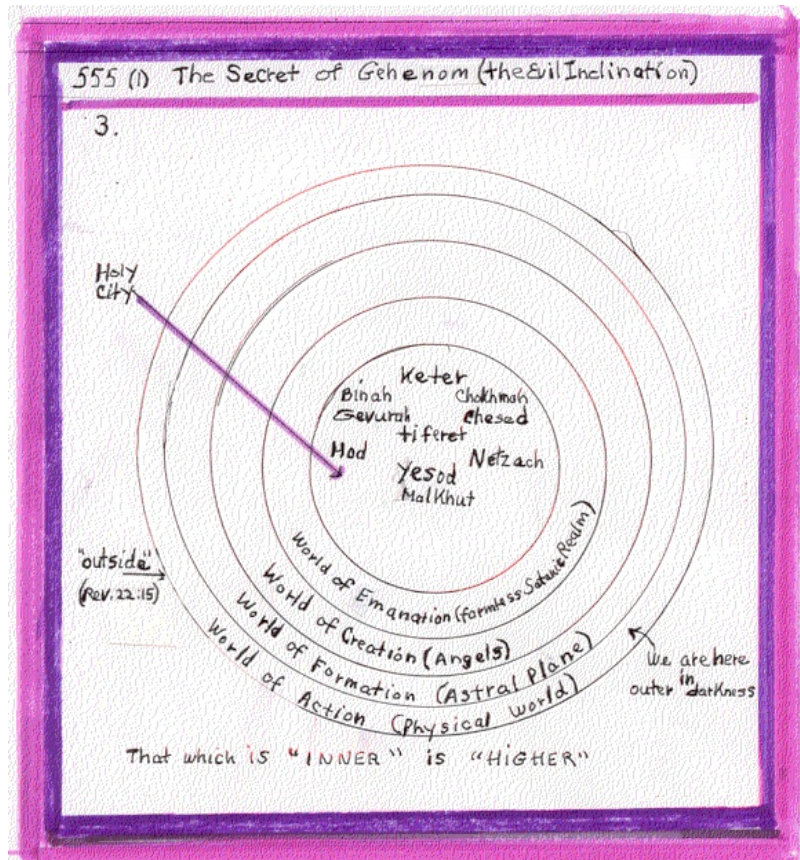 555 (1) The Secret of Gehenom (the Evil Inclination)
3.
Holy
City
Keter
Binah
Chokhmah
Gevurah
Chesed
tiferet
Hod
Netzach
Yesod
Malkhut
World of Emanation (formless Satanic Realm)
World of Creation (Angels)
World of Formation (Astral Plane)
World of Action (Physical World)
"outside"
(Rev. 22:15)
We are here
in
outer darkness
That which is "INNER" is "HIGHER"